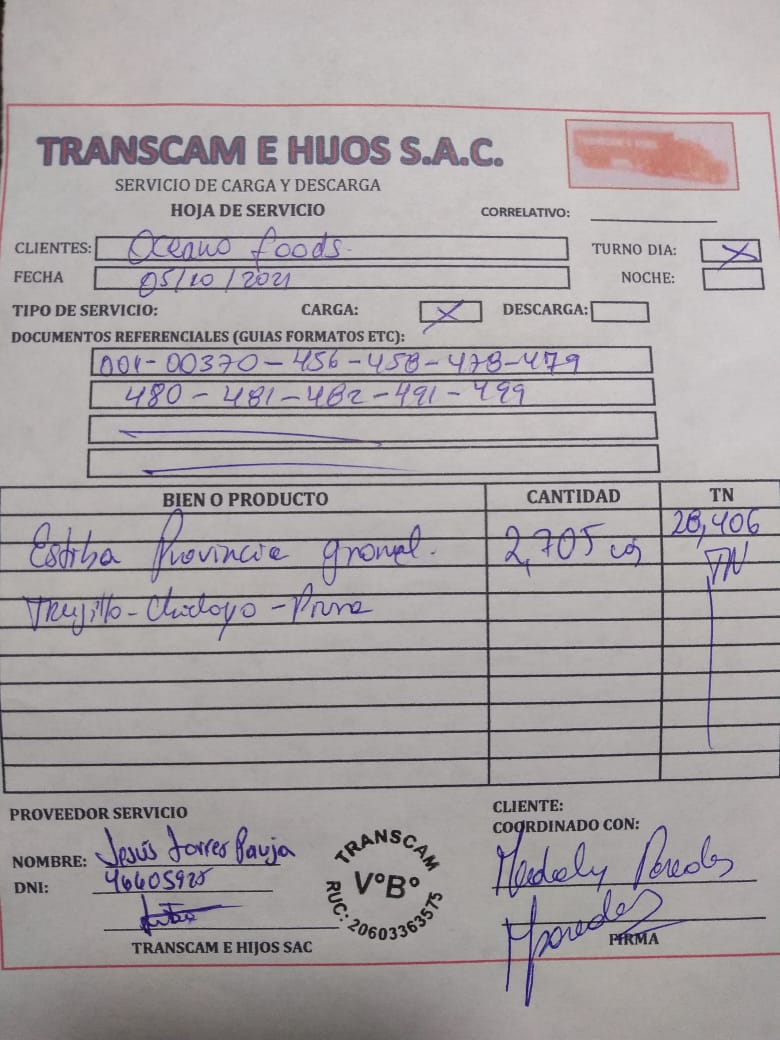 TRANSCAM E HIJOS S.A.C.
SERVICIO DE CARGA Y DESCARGA
HOJA DE SERVICIO
CORRELATIVO:
CLIENTES: Oceano foods.
TURNO DIA: X
FECHA 05/10/2021
NOCHE:
TIPO DE SERVICIO: CARGA: X DESCARGA:
DOCUMENTOS REFERENCIALES (GUIAS FORMATOS ETC):
001-00370-456-458-478-479
480-481-482-491-499
BIEN O PRODUCTO CANTIDAD TN
Estiba Provincia granel. 2,705 28,406
TN
Trujillo-Chiclayo-Piura
PROVEEDOR SERVICIO
CLIENTE:
COORDINADO CON:
NOMBRE: Jesús Torres Pauja
Paredes
DNI: 46605925
TRANSCAM
V°B°
RUC: 20603363575
TRANSCAM E HIJOS SAC
Paredes
PIRMA